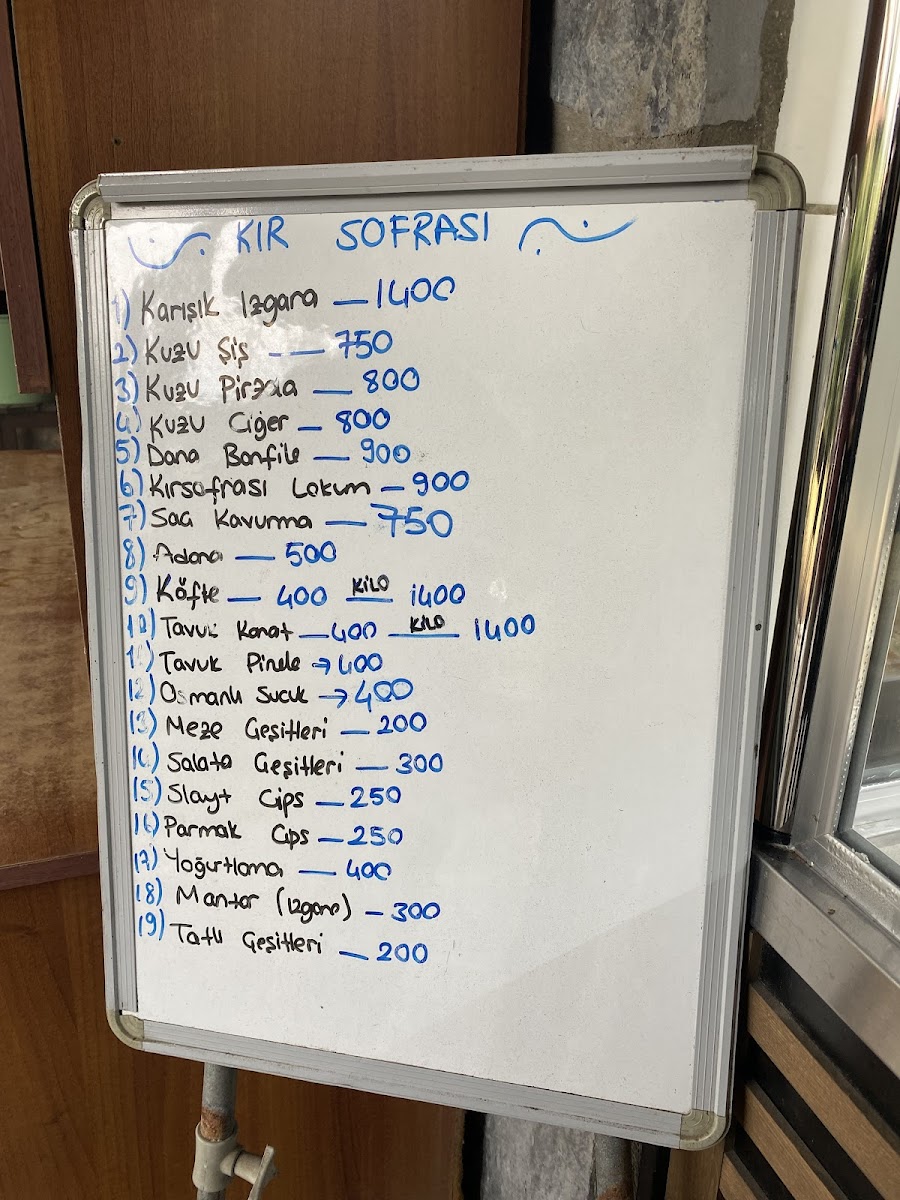 KIR SOFRASI
1) Karışık Izgara — 1400
2) Kuzu Şiş - — 750
3) Kuzu Pirzola — 800
4) Kuzu Ciğer — 800
5) Dana Bonfile — 900
6) Kırsofrası Lokum — 900
7) Sac Kavurma — 750
8) Adana — 500
9) Köfte — 400 KİLO — 1400
10) Tavuk Kanat — 400 KİLO — 1400
11) Tavuk Pirzola → 400
12) Osmanlı Sucuk → 400
13) Meze Çeşitleri — 200
14) Salata Çeşitleri — 300
15) Slayt Cips — 250
16) Parmak Cips — 250
17) Yoğurtlama — 400
18) Mantar (Izgara) — 300
19) Tatlı Çeşitleri — 200